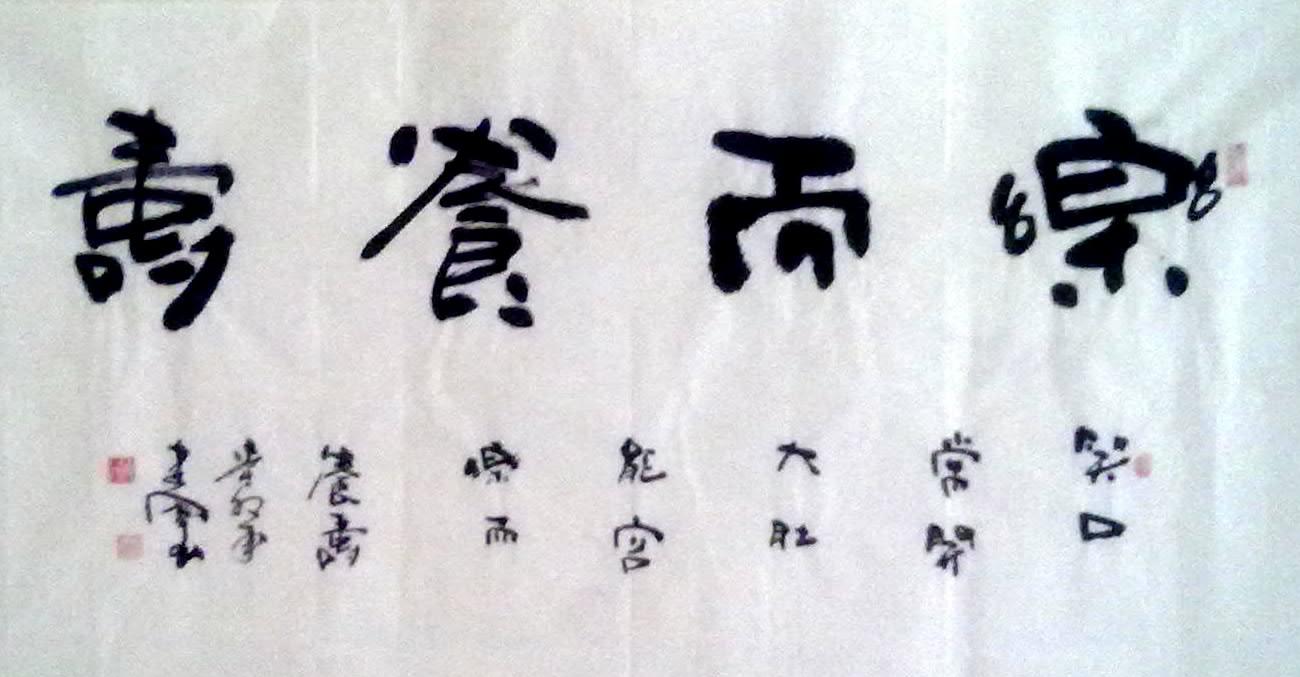 樂而養壽
笑口
常開
大肚
能容
樂而
養壽